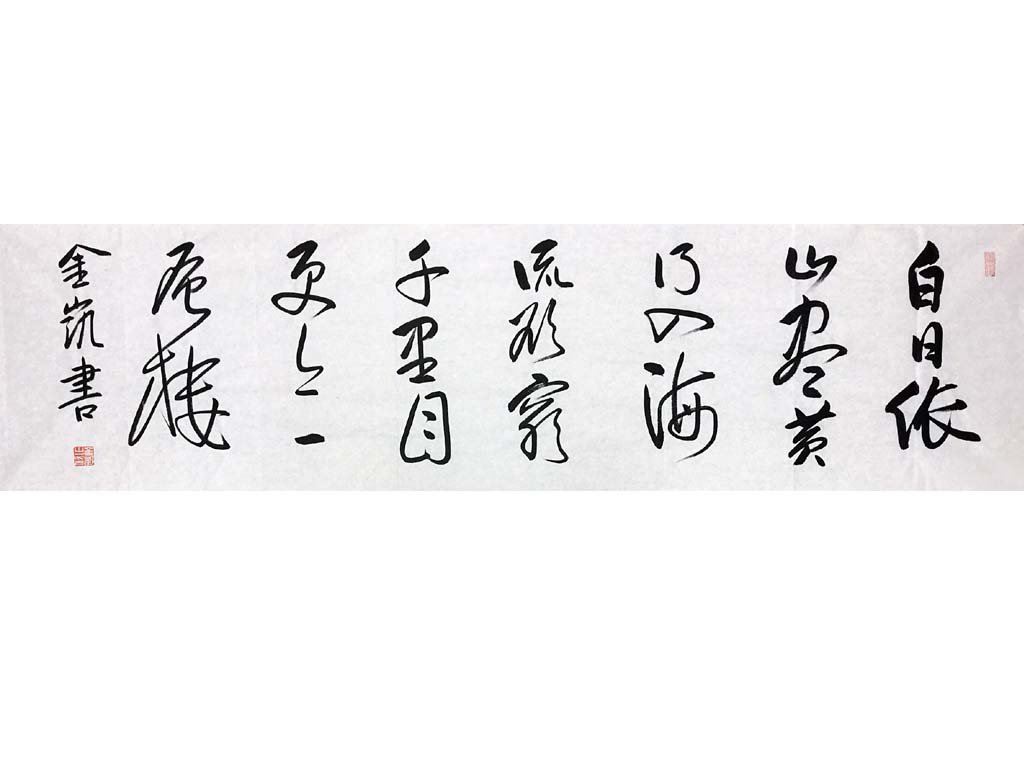 白日依
山尽黄
河入海
流欲穷
千里目
更上一
层楼
金書